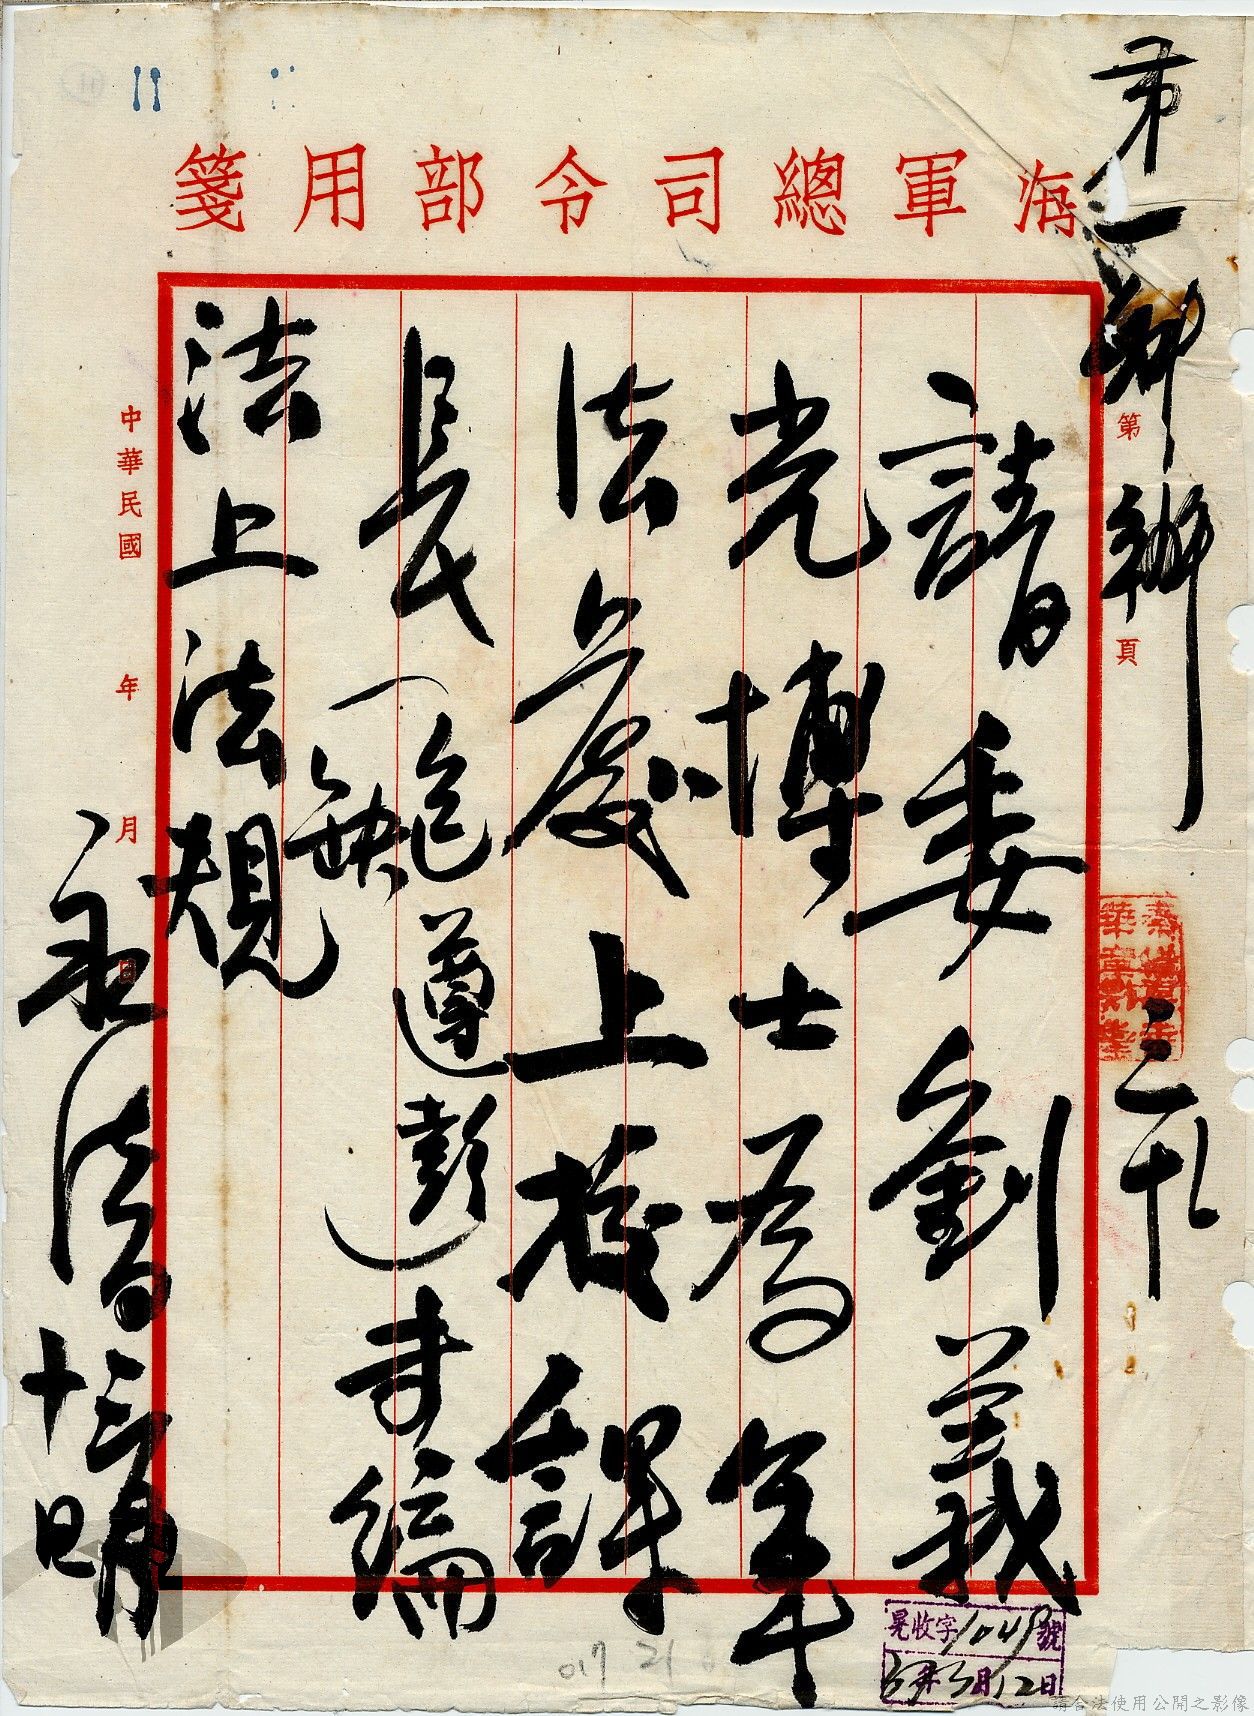 海軍總司令部用箋
第一署辦
三十
第 頁
請委劉義
光博士為軍
法處上校課
長(缺
龍遵彭專編
法上法規
中華民國 年 月 日
十三
晃收字1049號
3月12日
11
017 21
請合法使用公開之影像